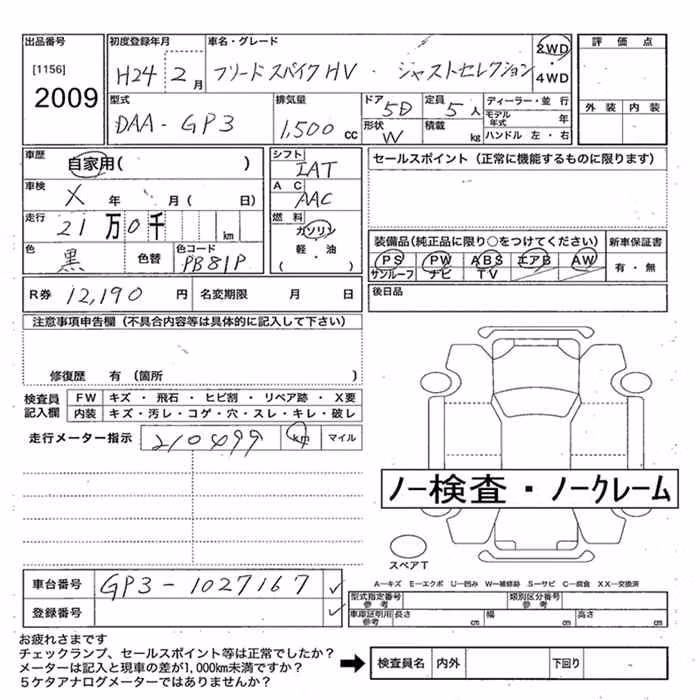 出品番号 初度登録年月 車名・グレード 評価点
[1156] H24 2月 フリードスパイクHV・ジャストセレクション 2WD・4WD
2009 外装 内装
型式 排気量 ドア 5D 定員 5人 ディーラー・並行
DAA-GP3 1,500cc 形状 W 積載 kg モデル年式 年
ハンドル 左・右
車歴 自家用( ) シフト IAT セールスポイント(正常に機能するものに限ります)
車検 X 年 月( 日) AC AAC
走行 21万0千 km 燃料 ガソリン
(軽・油) 装備品(純正品に限り○をつけてください) 新車保証書
色 黒 色替 色コード PB81P PS PW ABS エアB AW 有・無
サンルーフ ナビ TV
R券 12,190円 名変期限 月 日 後日品
注意事項申告欄(不具合内容等は具体的に記入して下さい)
修復歴 有(箇所 )
検査員記入欄 FW キズ・飛石・ヒビ割・リペア跡・X要
内装 キズ・汚レ・コゲ・穴・スレ・キレ・破レ
走行メーター指示 210499 km マイル
ノー検査・ノークレーム
スペアT
A―キズ E―エクボ U―凹み W―補修跡 S―サビ C―腐食 XX―交換済
車台番号 GP3-1027167 ✓ 型式指定番号 参考 類別区分番号 参考
登録番号 ✓ 車庫証明用 参考 長さ cm 幅 cm 高さ cm
お疲れさまです
チェックランプ、セールスポイント等は正常でしたか?
メーターは記入と現車の差が1,000km未満ですか? ➡ 検査員名 内外 下回り
5ケタアナログメーターではありませんか?